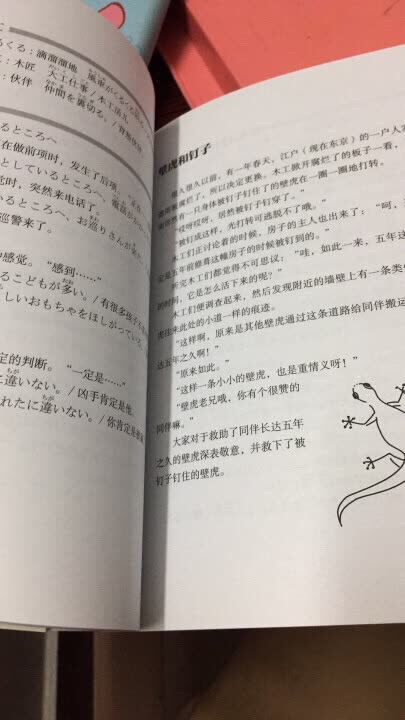 くる：滴溜溜地　風車がくるくる
：木匠　大工仕事／木工活儿
：伙伴　仲間を裏切る。／背叛伙伴
るところへ
在做前项时，发生了后项。“正在
としているところへ、電話が
时，突然来电话了。
いるところへ、お巡りさんが
巡警来了。
中感觉。“感到……”
るこどもが多い。／有很多孩子
しいおもちゃをほしがっている。
定的判断。“一定是……”
に違いない。／凶手肯定是他。
れたに違いない。／你肯定是被
壁虎和钉子
很久很久以前，有一年春天，江户（现在东京）的一户人家
腐烂了，所以决定更换。木工掀开腐烂了的板子一看，
有一只身体被钉子钉住了的壁虎在一圈一圈地打转。
“哎呀哎呀，居然被钉子钉穿了。”
“被钉成这样，光打转可逃脱不了哦。”
木工们正讨论着的时候，房子的主人也出来了：“呵，
是五年前修葺这幢房子的时候被钉到的。”
听完木工们都觉得不可思议：“哇，如此一来，五年
的时间，它是怎么活下来的呢？”
木工们便调查起来，然后发现附近的墙壁上有一条类
虎往来此处的小道一样的痕迹。
“这样啊，原来是其他壁虎通过这条道路给同伴搬运
达五年之久啊！”
“原来如此。”
“这样一条小小的壁虎，也是重情义呀！”
“壁虎老兄哦，你有个很赞的
同伴嘛。”
大家对于救助了同伴长达五年
之久的壁虎深表敬意，并救下了被
钉子钉住的壁虎。